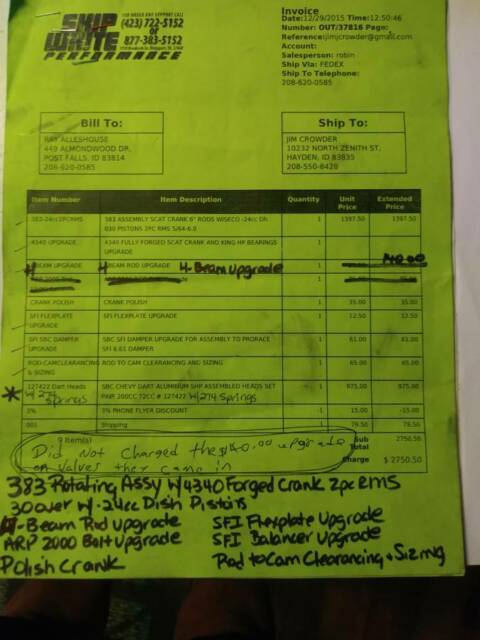 SKIP WHITE
PERFORMANCE
(423) 722-5152
or
877-383-5152
Invoice
Date:12/29/2015 Time:12:50:46
Number: OUT/37816 Page:
Reference:jimjcrowder@gmail.com
Account:
Salesperson: robin
Ship Via: FEDEX
Ship To Telephone:
208-620-0585
Bill To:
RAY ALLESHOUSE
449 ALMONDWOOD DR.
POST FALLS, ID 83814
208-620-0585
Ship To:
JIM CROWDER
10232 NORTH ZENITH ST.
HAYDEN, ID 83835
208-550-8428
Item Number Item Description Quantity Unit Price Extended Price
383-24cc2PCRMS 383 ASSEMBLY SCAT CRANK 6" RODS WISECO -24cc Dh 030 PISTONS 2PC RMS 5/64-6.0 1 1397.50 1397.50
4340 UPGRADE 4340 FULLY FORGED SCAT CRANK AND KING HP BEARINGS UPGRADE 1
BEAM UPGRADE BEAM ROD UPGRADE H-Beam Upgrade 1 140.00
CRANK POLISH CRANK POLISH 1 35.00 35.00
SFI FLEXPLATE UPGRADE SFI FLEXPLATE UPGRADE 1 12.50 12.50
SFI SBC DAMPER UPGRADE SBC SFI DAMPER UPGRADE FOR ASSEMBLY TO PRORACE SFI 6.61 DAMPER 1 61.00 61.00
ROD-CAMCLEARANCING & SIZING ROD TO CAM CLEARANCING AND SIZING 1 65.00 65.00
* 127422 Dart Heads W/274 Springs SBC CHEVY DART ALUMINUM SHP ASSEMBLED HEADS SET PAIR 200CC 72CC # 127422 W/274 Springs 1 975.00 975.00
3% 3% PHONE FLYER DISCOUNT -1 15.00 -15.00
001 Shipping 1 79.50 79.50
9 Item(s) Sub Total 2750.50
Charge $ 2750.50
Did Not Charged the $140.00 upgrade
on Valves they came in
383 Rotating Assy W/4340 Forged Crank 2pc RMS
30 over W/-24cc Dish Pistons
H-Beam Rod Upgrade SFI Flexplate Upgrade
ARP 2000 Bolt Upgrade SFI Balancer Upgrade
Polish Crank Rod to Cam Clearancing & Sizing